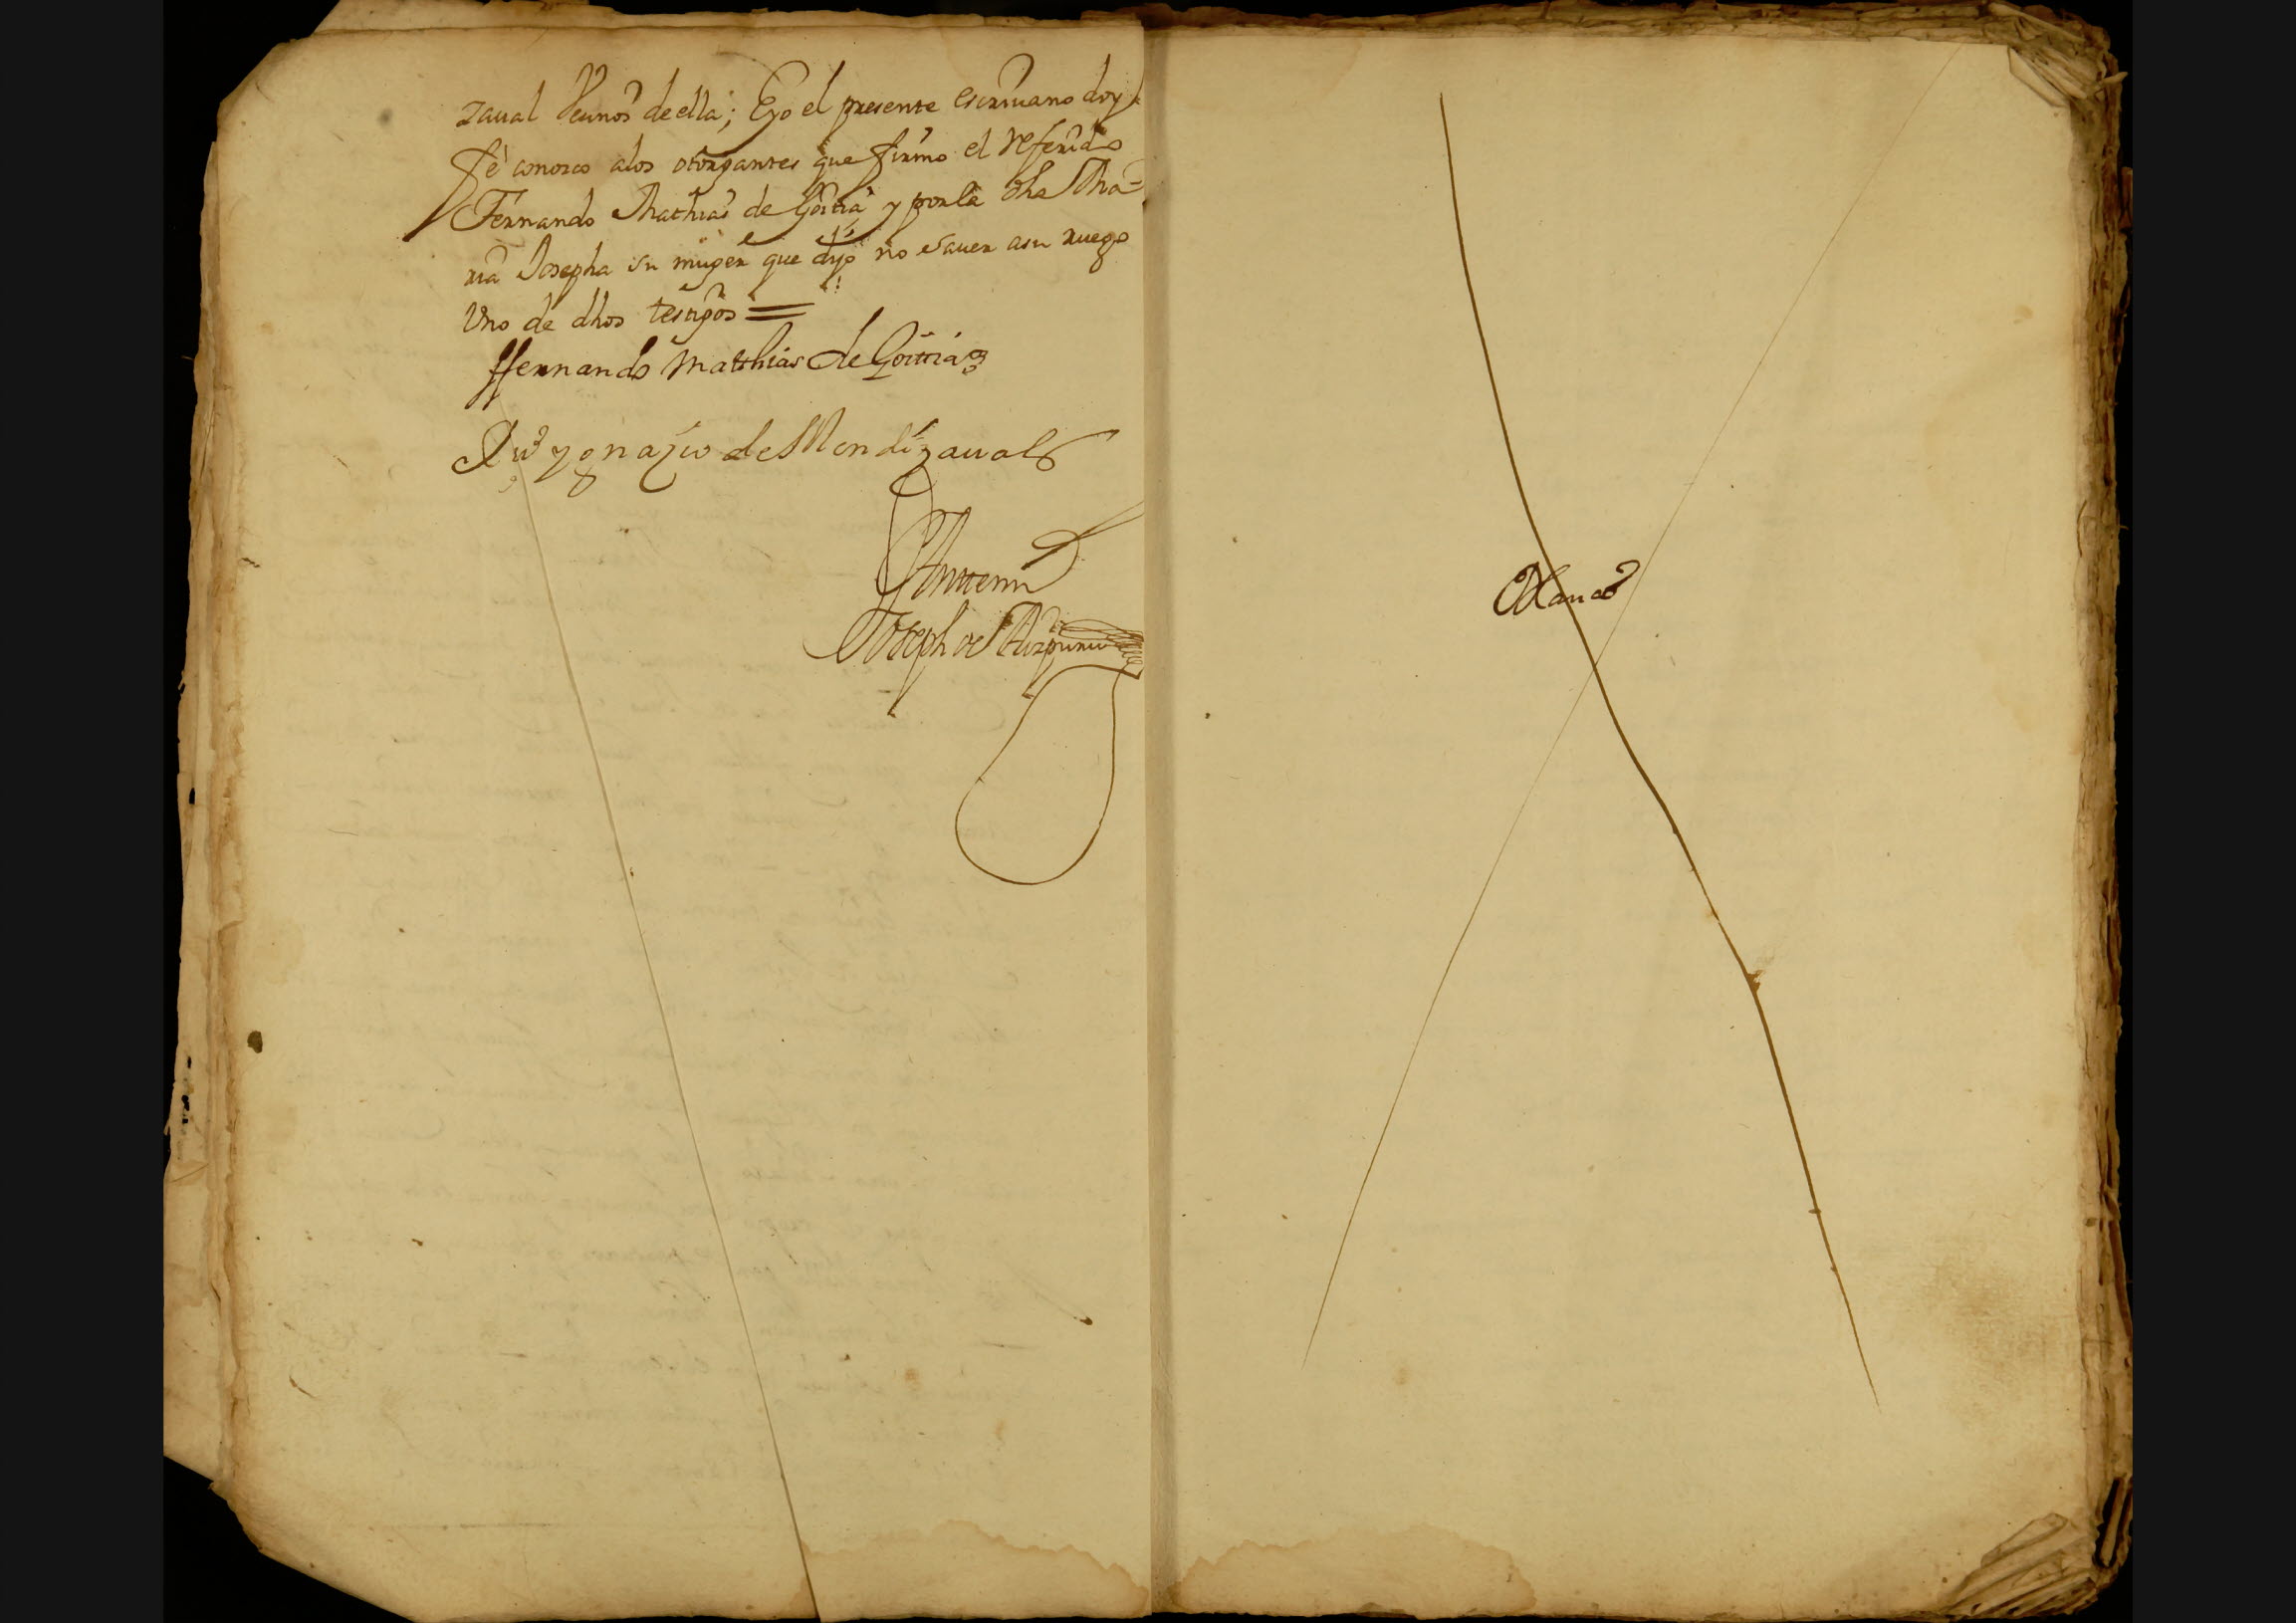 zaual Vecinos de ella; E yo el presente escriuano doy
fè conosco a los otorgantes que firmo el referido
Fernando Mathias de Goitia y por la dha Ma=
ria Josepha su muger que dijo no sauer a su ruego
Vno de dhos testigos =
ffernando Matthias de Goittia
Ygnazio de Mendizaual
Antte mi
Joseph de Aizpuru
Blanco